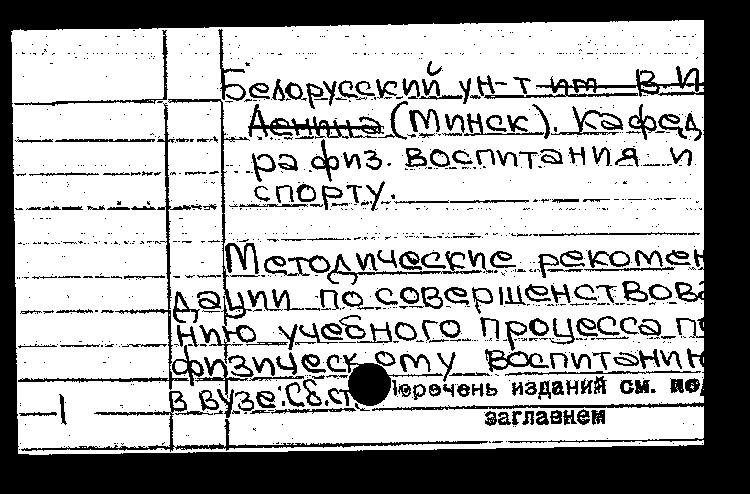 Белорусский ун-т им В И
Ленина (Минск). Кафед
ра физ. воспитания и
спорту.
Методические рекомен
дации по совершенствова
нию учебного процесса по
физическому воспитанию
в вузе: Сб.ст. Перечень изданий см. под
1 заглавием